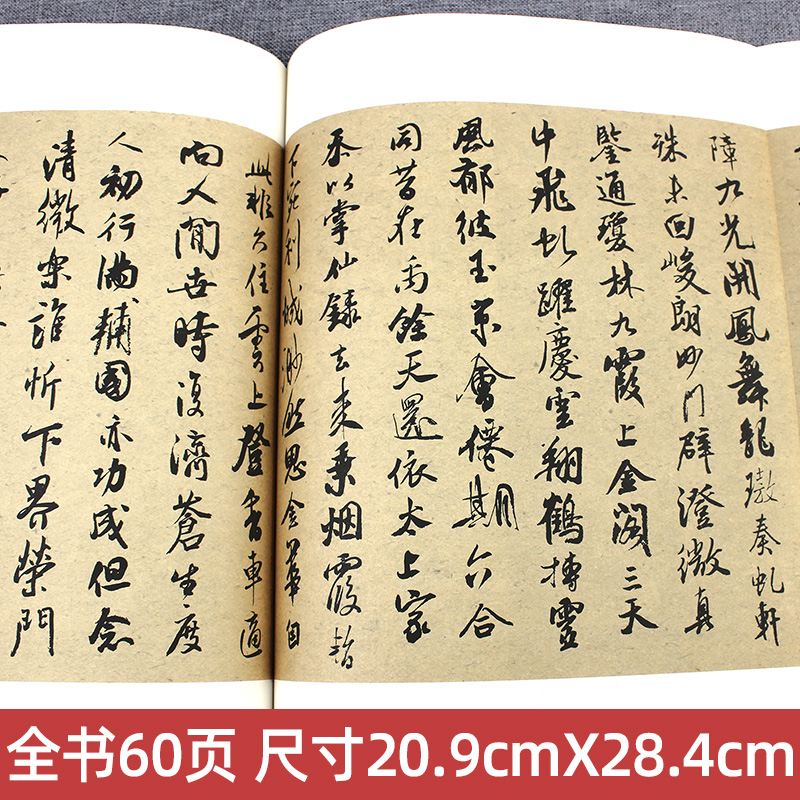 障九光開鳳舞龍璈奏虬軒
殊未回峻朗妙門辟澄微真
鑒通瓊林九霞上金閣三天
中飛虬躍慶雲翔鶴摶靈
風郁彼玉京會僊期六合
同昔在禹餘天還依太上家
忝以掌仙錄去來乘烟霞暫
下宛利城渺然思金華自
此非久住雲上登香車適
向人間世時復濟蒼生度
人初行滿輔國亦功成但念
清微樂誰忻下界榮門
全书60页 尺寸20.9cmX28.4cm